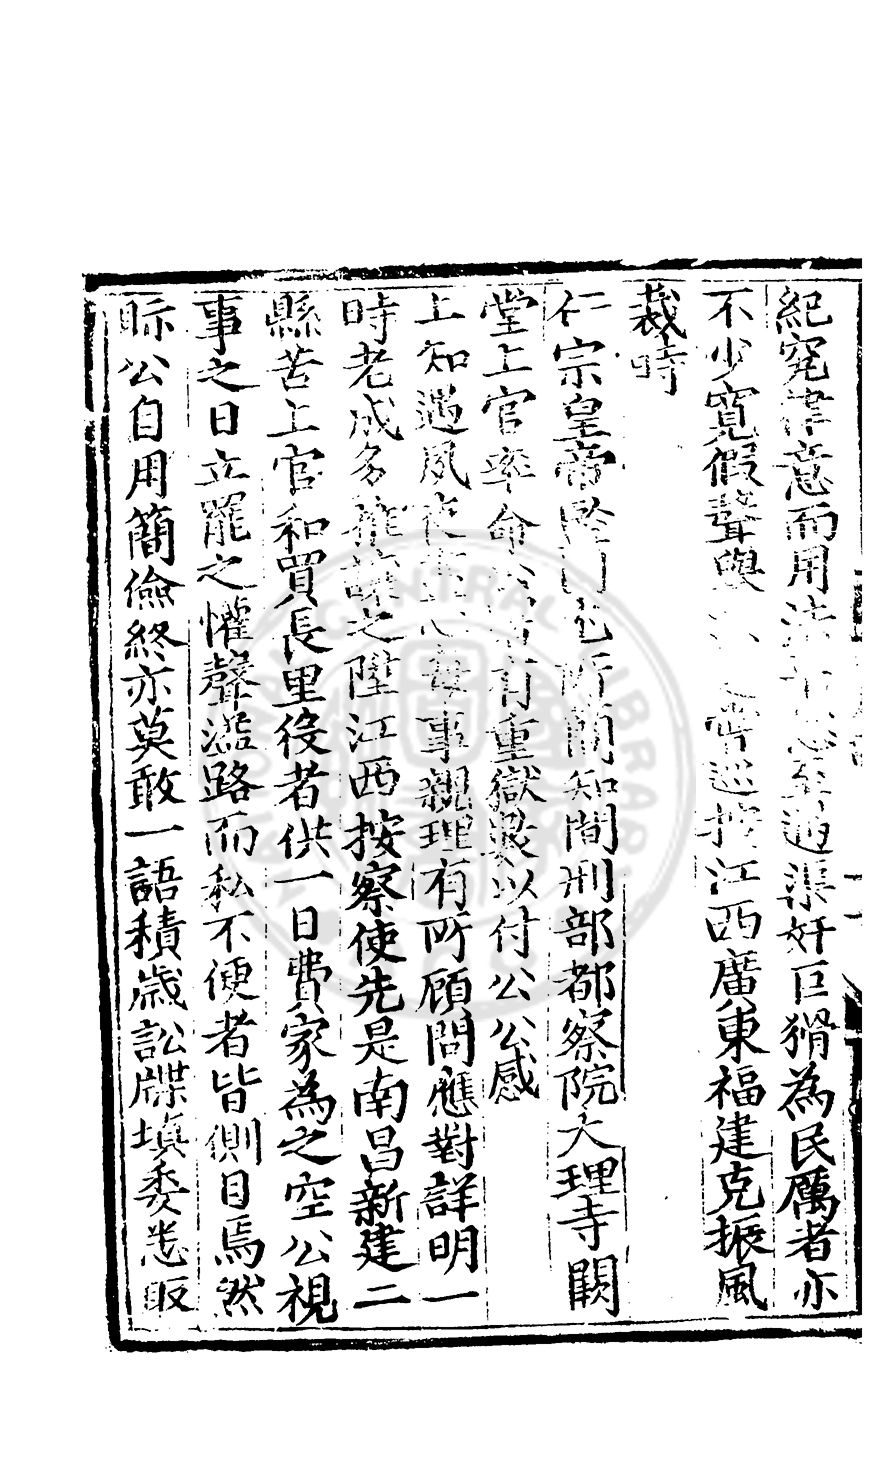 紀究律意而用法至過渠奸巨猾為民厲者亦
不少寬假聲與巡按江西廣東福建克振風
裁時
仁宗皇帝所簡知間刑部都察院大理寺闕
堂上官率命有重獄畏以付公公感
上知遇夙事親理有所顧問應對詳明一
時老成多推讓之陞江西按察使先是南昌新建二
縣苦上官和買長里役者供一日費家為之空公視
事之日立罷之懽聲溢路而私不便者皆側目焉然
眎公自用簡儉終亦莫敢一語積歲訟牒填委悉取
CENTRAL LIBRARY